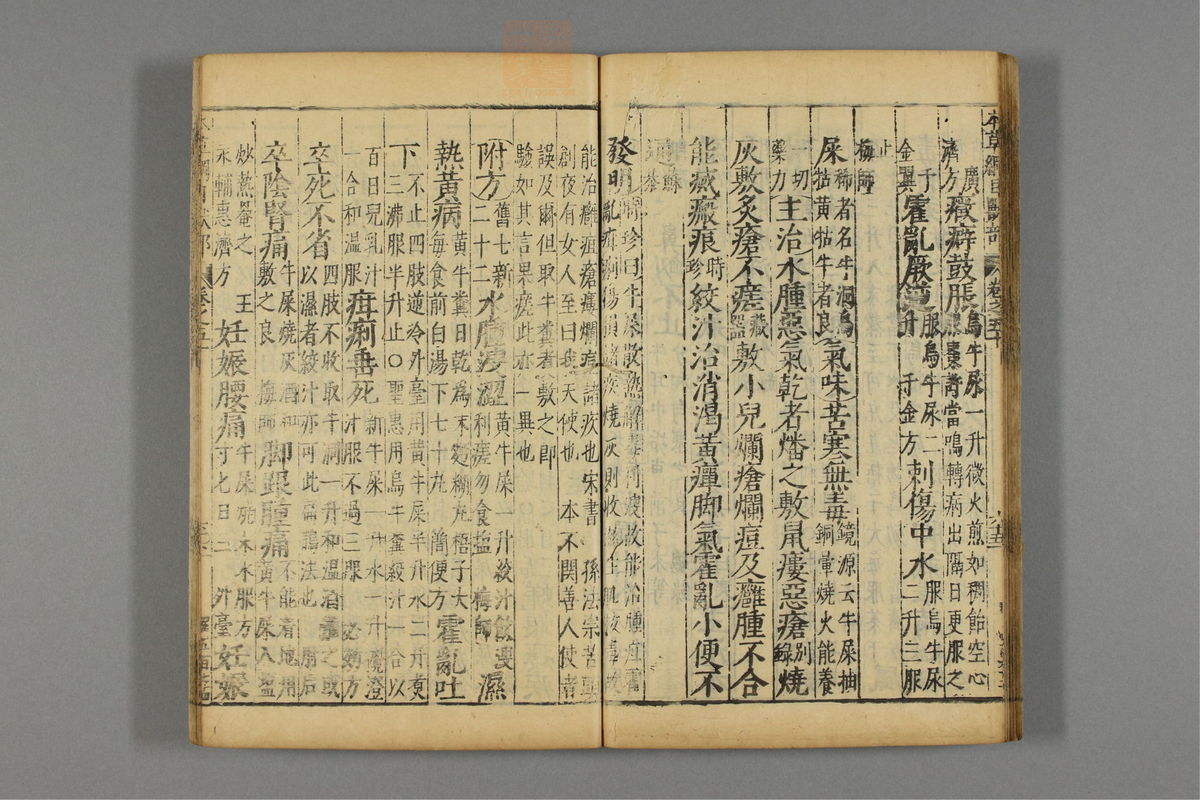 本草綱目獸部 卷之五十 六十五
廣濟方癥癖鼓脹烏牛尿一升微火煎如稠飴空心服棗許當鳴轉病出隔日更服之
千金翼霍亂厥逆服烏牛尿二升千金方刺傷中水服烏牛尿二升三服
止梅師
屎稀者名牛洞烏牯黃牯牛者良氣味苦寒無毒鏡源云牛屎抽銅暈燒火能養
一切藥力主治水腫惡氣乾者燔之敷鼠瘻惡瘡別錄燒
灰敷灸瘡不瘥藏器敷小兒爛瘡爛痘及癰腫不合
能滅瘢痕時珍絞汁治消渴黃癉脚氣霍亂小便不
通蘇恭
發明時珍曰牛屎散熱解毒利溲故能治腫疽霍亂疳痢傷損諸疾燒灰則收濕生肌拔毒故
能治癰疽瘡瘻爛痘諸疾也宋書孫法宗苦頭創夜有女人至曰我天使也本不關善人使者
誤及爾但取牛糞煮敷之即驗如其言果瘥此亦一異也
附方舊七新二十二水腫溲澀黃牛屎一升絞汁飲溲利瘥勿食鹽梅師濕
熱黃病黃牛糞日乾為末麪糊丸梧子大每食前白湯下七十丸簡便方霍亂吐
下不止四肢逆冷外臺用黃牛屎半升水二升煮三沸服半升止○聖惠用烏牛糞絞汁一合以
百日兒乳汁一合和溫服疳痢垂死新牛屎一升水一升攪澄汁服不過三服必効方
卒死不省四肢不收取牛洞一升和溫酒灌之或以濕者絞汁亦可此扁鵲法也肘后
卒陰腎痛牛屎燒灰酒和敷之良梅師脚跟腫痛不能着地用黃牛屎入鹽
炒熱罨之王永輔惠濟方妊娠腰痛牛屎燒末水服方寸匕日三外臺妊娠
本草綱目獸部 卷之五十